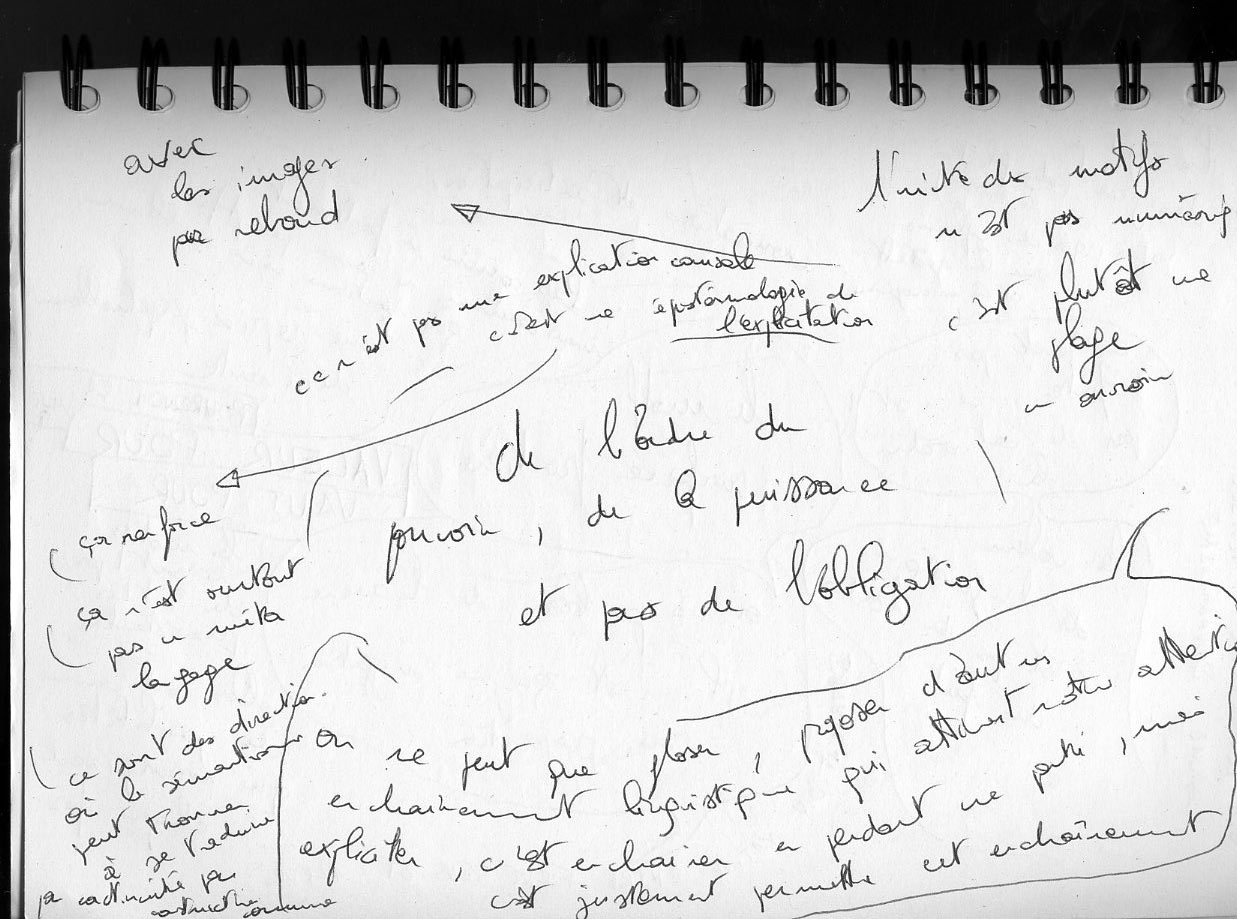 avec
les images
par rebond
l'unité des motifs
n'est pas numérique
c'est plutôt une
plage
un environ
ce n'est pas une explication causale
c'est une épistémologie de
l'explicitation
de l'ordre du
pouvoir, de la puissance
et pas de l'obligation
ça renforce
ça n'est surtout
pas un méta
langage
ce sont des direction
où le
peut trouver
à se traduire
par continuité par
commune
On ne peut que gloser, proposer d'autres
enchainement linguistique qui attirent notre attention
expliciter, c'est enchainer en perdant une partie, mais
c'est justement permettre cet enchaînement